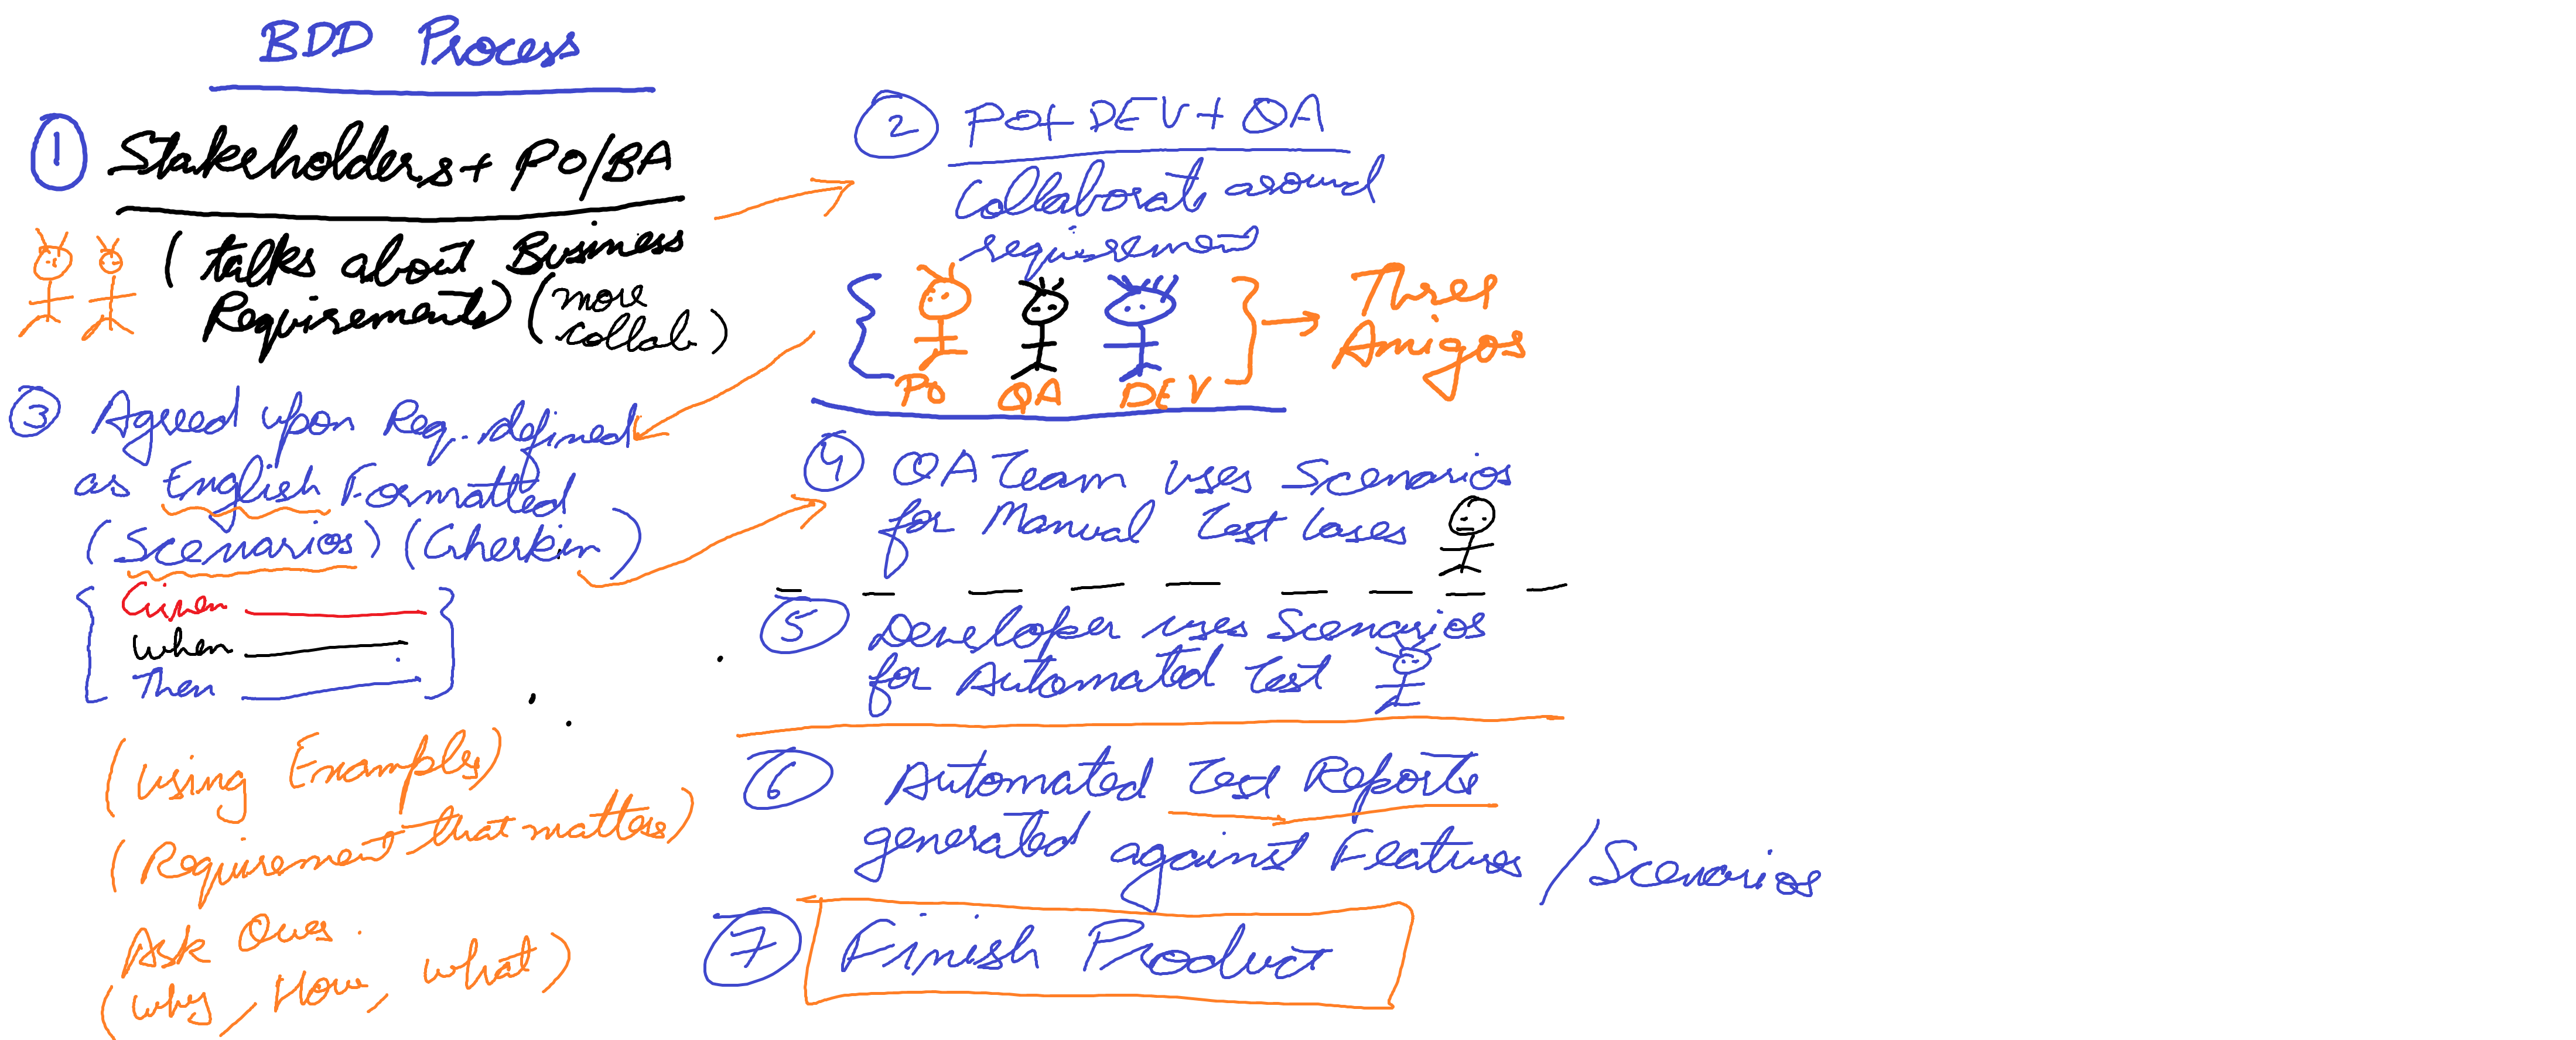 BDD Process
① Stakeholders + PO/BA
(talks about Business
Requirements) (more
collab.)
② PO+ DEV + QA
Collaborate around
requirement
{ PO QA DEV } → Three
Amigos
③ Agreed upon Req. defined
as English Formatted
(Scenarios) (Gherkin)
Given ______
When ______
Then ______
(using Examples)
(Requirement that matters)
Ask Ques.
(why, How, what)
④ QA Team uses Scenarios
for Manual Test Cases
⑤ Developer uses Scenarios
for Automated Test
⑥ Automated Test Reports
generated against Features / Scenarios
⑦ Finish Product